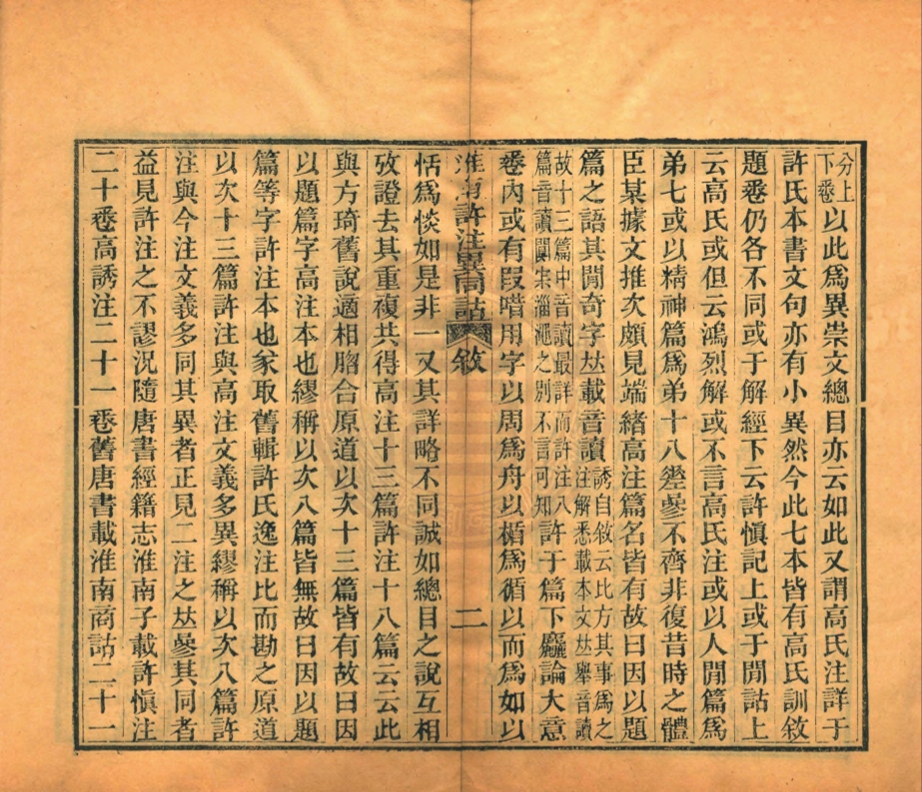 分上下卷以此爲異崇文總目亦云如此又謂高氏注詳于
許氏本書文句亦有小異然今此七本皆有高氏訓敘
題卷仍各不同或于解經下云許愼記上或于閒詁上
云高氏或但云鴻烈解或不言高氏注或以人閒篇爲
弟七或以精神篇爲弟十八參不齊非復昔時之體
臣某據文推次頗見端緖高注篇名皆有故曰因以題
篇之語其閒奇字𠀤載音讀誘自敘云比方其事爲之注解悉載本文𠀤舉音讀
故十三篇中音讀最詳而許注八篇音讀闕宋淄澠之別不言可知許于篇下麤論大意
卷内或有叚喈用字以周爲舟以楯爲循以而爲如以
淮南許注異同詁 敘 二
恬爲惔如是非一又其詳略不同誠如總目之說互相
攷證去其重複共得高注十三篇許注十八篇云云此
與方琦舊說適相脗合原道以次十三篇皆有故曰因
以題篇字高注本也繆稱以次八篇皆無故曰因以題
篇等字許注本也家取舊輯許氏逸注比而勘之原道
以次十三篇許注與高注文義多異繆稱以次八篇許
注與今注文義多同其異者正見二注之𠀤參其同者
益見許注之不謬況隨唐書經籍志淮南子載許愼注
二十卷高誘注二十一卷舊唐書載淮南商詁二十一